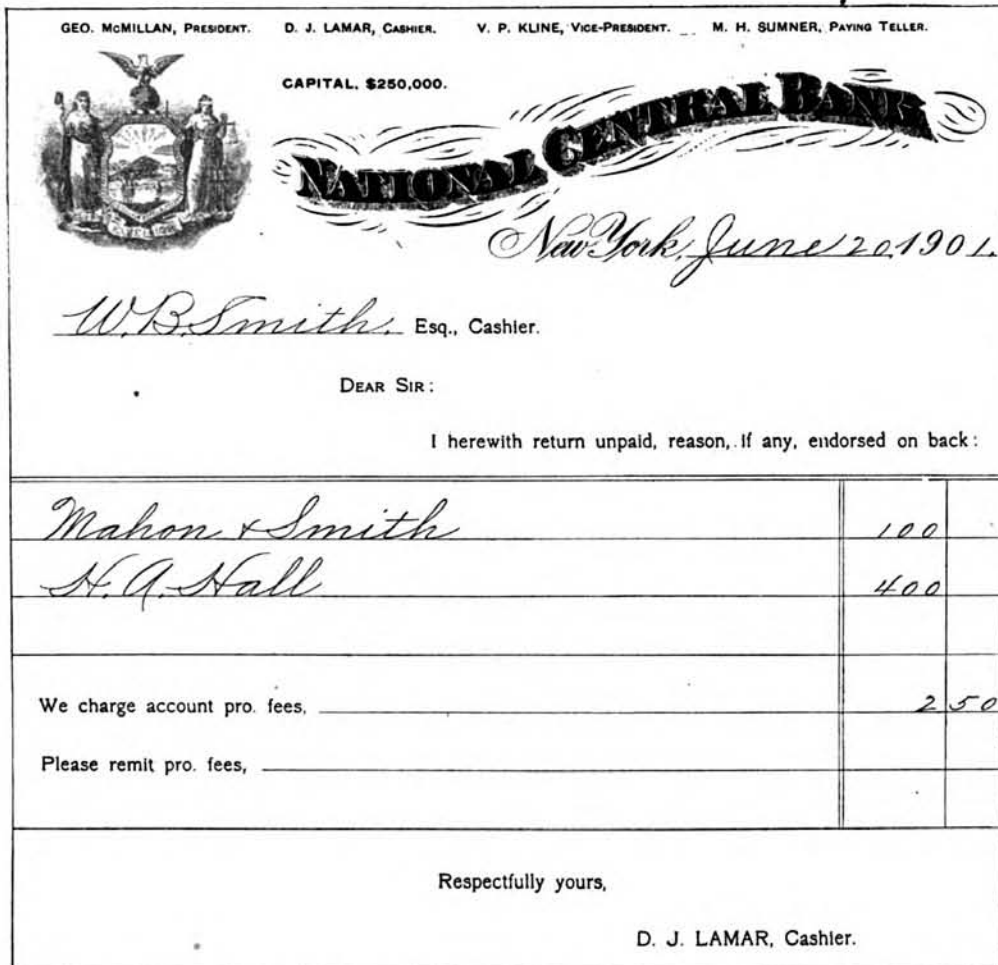 GEO. McMILLAN, PRESIDENT. D. J. LAMAR, CASHIER. V. P. KLINE, VICE-PRESIDENT. M. H. SUMNER, PAYING TELLER.
CAPITAL, $250,000.
NATIONAL CENTRAL BANK
New York, June 20, 1901.
W. B. Smith, Esq., Cashier.
DEAR SIR:
I herewith return unpaid, reason, if any, endorsed on back:
Mahon & Smith 100
H. A. Hall 400
We charge account pro. fees, 2 50
Please remit pro. fees,
Respectfully yours,
D. J. LAMAR, Cashier.